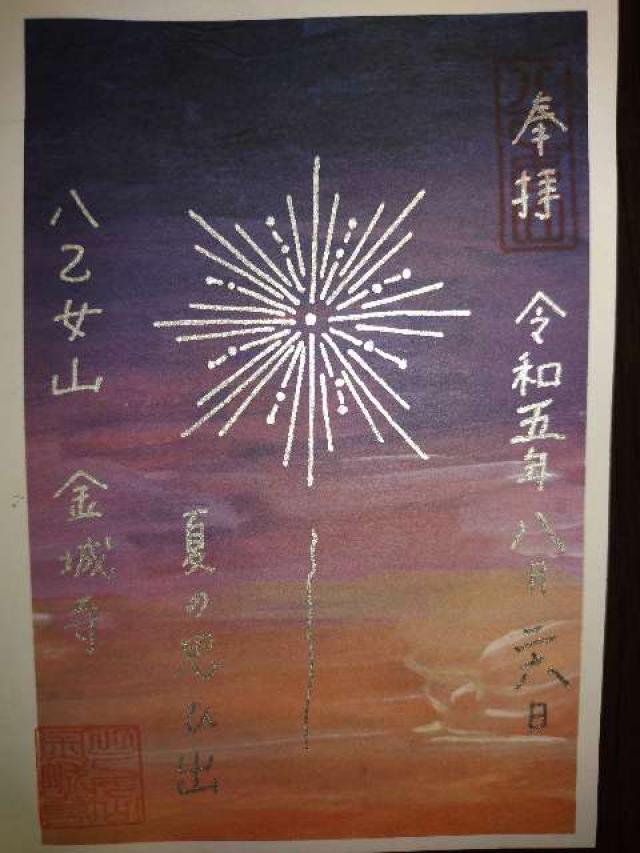 奉拝
令和五年八月二八日
夏の思ひ出
八乙女山 金城寺